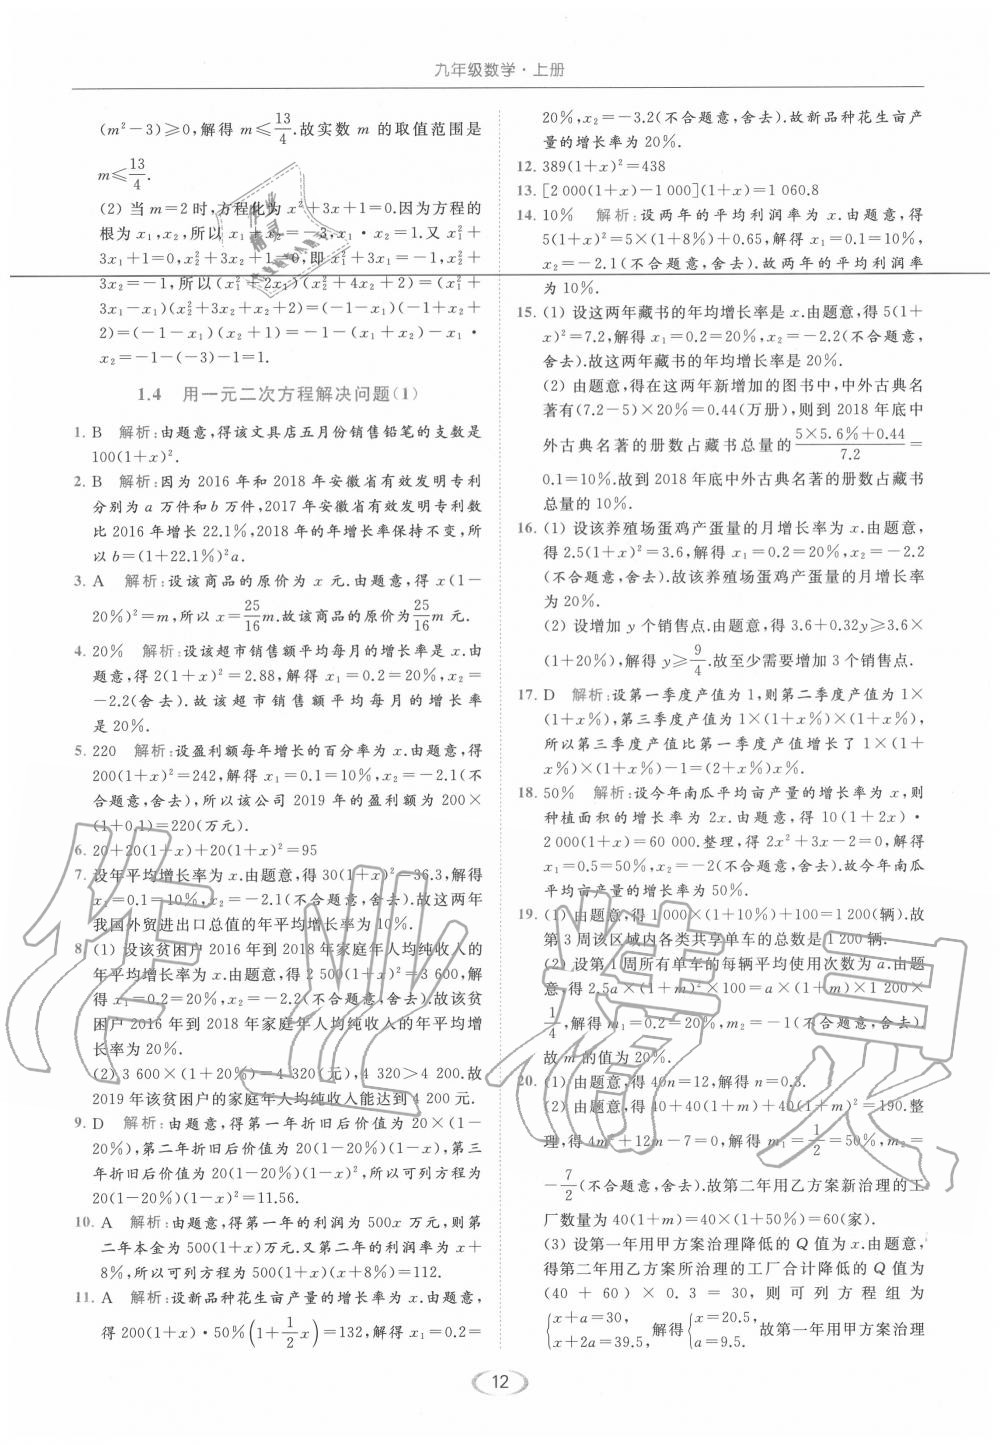 九年级数学·上册
(m²-3)≥0,解得 m≤13/4.故实数 m 的取值范围是
m≤13/4.
(2) 当 m=2 时,方程化为 x²+3x+1=0.因为方程的
根为 x₁,x₂,所以 x₁+x₂=-3,x₁·x₂=1.又 x₁²+
3x₁+1=0,x₂²+3x₂+1=0,即 x₁²+3x₁=-1,x₂²+
3x₂=-1,所以(x₁²+2x₁)(x₂²+4x₂+2)=(x₁²+
3x₁-x₁)(x₂²+3x₂+x₂+2)=(-1-x₁)(-1+x₂+
2)=(-1-x₁)(x₂+1)=-1-(x₁+x₂)-x₁·
x₂=-1-(-3)-1=1.
1.4 用一元二次方程解决问题(1)
1. B 解析:由题意,得该文具店五月份销售铅笔的支数是
100(1+x)².
2. B 解析:因为 2016 年和 2018 年安徽省有效发明专利
分别为 a 万件和 b 万件,2017 年安徽省有效发明专利数
比 2016 年增长 22.1%,2018 年的年增长率保持不变,所
以 b=(1+22.1%)²a.
3. A 解析:设该商品的原价为 x 元.由题意,得 x(1-
20%)²=m,所以 x=25/16m.故该商品的原价为25/16m 元.
4. 20% 解析:设该超市销售额平均每月的增长率是 x.由
题意,得 2(1+x)²=2.88,解得 x₁=0.2=20%,x₂=
-2.2(舍去).故该超市销售额平均每月的增长率
是 20%.
5. 220 解析:设盈利额每年增长的百分率为 x.由题意,得
200(1+x)²=242,解得 x₁=0.1=10%,x₂=-2.1(不
合题意,舍去),所以该公司 2019 年的盈利额为 200×
(1+0.1)=220(万元).
6. 20+20(1+x)+20(1+x)²=95
7. 设年平均增长率为 x.由题意,得 30(1+x)²=36.3,解得
x₁=0.1=10%,x₂=-2.1(不合题意,舍去).故这两年
我国外贸进出口总值的年平均增长率为 10%.
8. (1) 设该贫困户 2016 年到 2018 年家庭年人均纯收入的
年平均增长率为 x.由题意,得 2 500(1+x)²=3 600,解
得 x₁=0.2=20%,x₂=-2.2(不合题意,舍去).故该贫
困户 2016 年到 2018 年家庭年人均纯收入的年平均增
长率为 20%.
(2) 3 600×(1+20%)=4 320(元),4 320>4 200.故
2019 年该贫困户的家庭年人均纯收入能达到 4 200 元.
9. D 解析:由题意,得第一年折旧后价值为 20×(1-
20%),第二年折旧后价值为 20(1-20%)(1-x),第三
年折旧后价值为 20(1-20%)(1-x)²,所以可列方程为
20(1-20%)(1-x)²=11.56.
10. A 解析:由题意,得第一年的利润为 500x 万元,则第
二年本金为 500(1+x)万元.又第二年的利润率为 x+
8%,所以可列方程为 500(1+x)(x+8%)=112.
11. A 解析:设新品种花生亩产量的增长率为 x.由题意,
得 200(1+x)·50%(1+1/2x)=132,解得 x₁=0.2=
20%,x₂=-3.2(不合题意,舍去).故新品种花生亩产
量的增长率为 20%.
12. 389(1+x)²=438
13. [2 000(1+x)-1 000](1+x)=1 060.8
14. 10% 解析:设两年的平均利润率为 x.由题意,得
5(1+x)²=5×(1+8%)+0.65,解得 x₁=0.1=10%,
x₂=-2.1(不合题意,舍去).故两年的平均利润率
为 10%.
15. (1) 设这两年藏书的年均增长率是 x.由题意,得 5(1+
x)²=7.2,解得 x₁=0.2=20%,x₂=-2.2(不合题意,
舍去).故这两年藏书的年均增长率是 20%.
(2) 由题意,得在这两年新增加的图书中,中外古典名
著有(7.2-5)×20%=0.44(万册),则到 2018 年底中
外古典名著的册数占藏书总量的(5×5.6%+0.44)/7.2=
0.1=10%.故到 2018 年底中外古典名著的册数占藏书
总量的 10%.
16. (1) 设该养殖场蛋鸡产蛋量的月增长率为 x.由题意,
得 2.5(1+x)²=3.6,解得 x₁=0.2=20%,x₂=-2.2
(不合题意,舍去).故该养殖场蛋鸡产蛋量的月增长率
为 20%.
(2) 设增加 y 个销售点.由题意,得 3.6+0.32y≥3.6×
(1+20%),解得 y≥9/4.故至少需要增加 3 个销售点.
17. D 解析:设第一季度产值为 1,则第二季度产值为 1×
(1+x%),第三季度产值为 1×(1+x%)×(1+x%),
所以第三季度产值比第一季度产值增长了 1×(1+
x%)×(1+x%)-1=(2+x%)x%.
18. 50% 解析:设今年南瓜平均亩产量的增长率为 x,则
种植面积的增长率为 2x.由题意,得 10(1+2x)·
2 000(1+x)=60 000.整理,得 2x²+3x-2=0,解得
x₁=0.5=50%,x₂=-2(不合题意,舍去).故今年南瓜
平均亩产量的增长率为 50%.
19. (1) 由题意,得 1 000×(1+10%)+100=1 200(辆).故
第 3 周该区域内各类共享单车的总数是 1 200 辆.
(2) 设第 1 周所有单车的每辆平均使用次数为 a.由题
意,得 2.5a×(1+m)²×100=a×(1+m)×1 200×
1/4,解得 m₁=0.2=20%,m₂=-1(不合题意,舍去).
故 m 的值为 20%.
20. (1) 由题意,得 40n=12,解得 n=0.3.
(2) 由题意,得 40+40(1+m)+40(1+m)²=190.整
理,得 4m²+12m-7=0,解得 m₁=1/2=50%,m₂=
-7/2(不合题意,舍去).故第二年用乙方案新治理的工
厂数量为 40(1+m)=40×(1+50%)=60(家).
(3) 设第一年用甲方案治理降低的 Q 值为 x.由题意,
得第二年用乙方案所治理的工厂合计降低的 Q 值为
(40 + 60) × 0.3 = 30, 则可列方程组为
{x+a=30, x+2a=39.5, 解得{x=20.5, a=9.5. 故第一年用甲方案治理
12
作业精灵